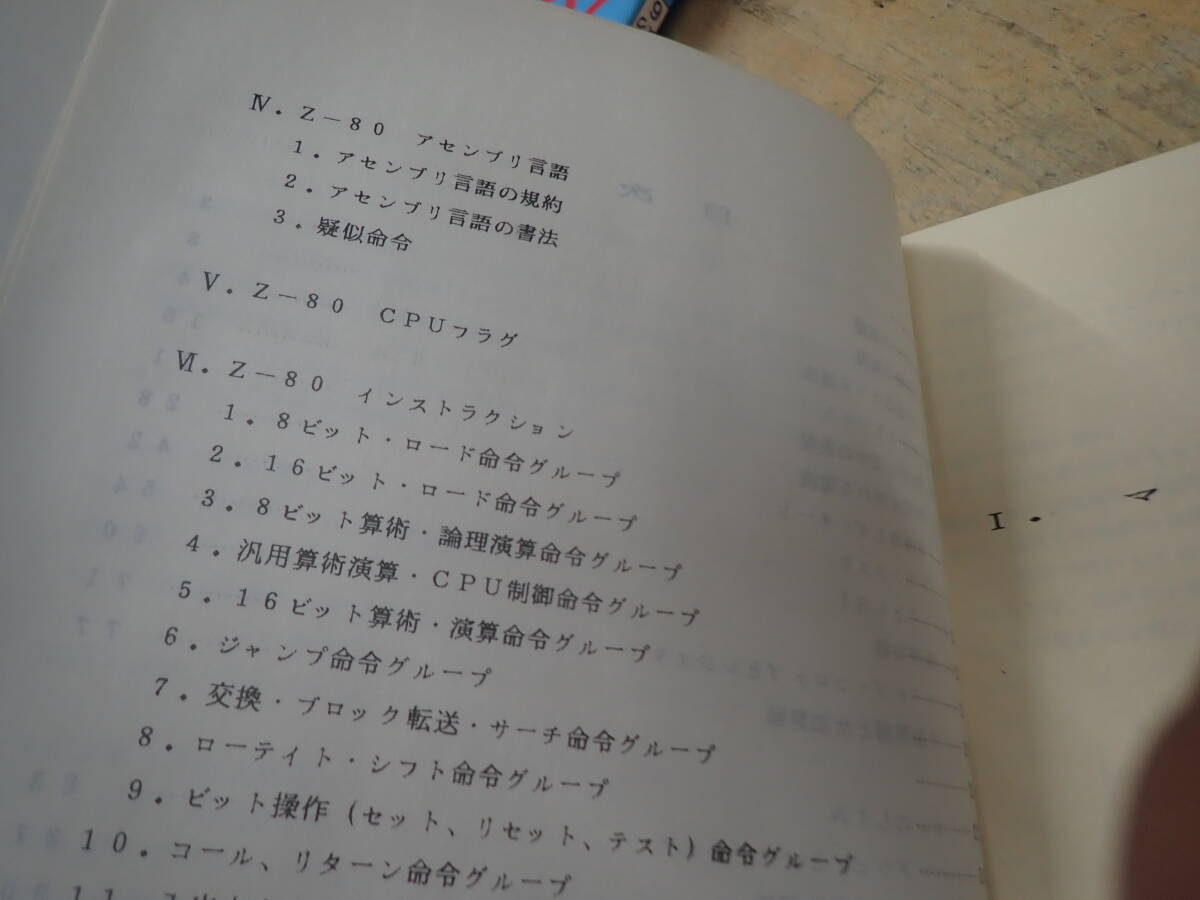 Ⅳ．Ｚ－８０　アセンブリ言語
１．アセンブリ言語の規約
２．アセンブリ言語の書法
３．疑似命令
Ⅴ．Ｚ－８０　ＣＰＵフラグ
Ⅵ．Ｚ－８０　インストラクション
１．８ビット・ロード命令グループ
２．１６ビット・ロード命令グループ
３．８ビット算術・論理演算命令グループ
４．汎用算術演算・ＣＰＵ制御命令グループ
５．１６ビット算術・演算命令グループ
６．ジャンプ命令グループ
７．交換・ブロック転送・サーチ命令グループ
８．ローテイト・シフト命令グループ
９．ビット操作（セット、リセット、テスト）命令グループ
１０．コール、リターン命令グループ
１１．入出力
Ⅰ．